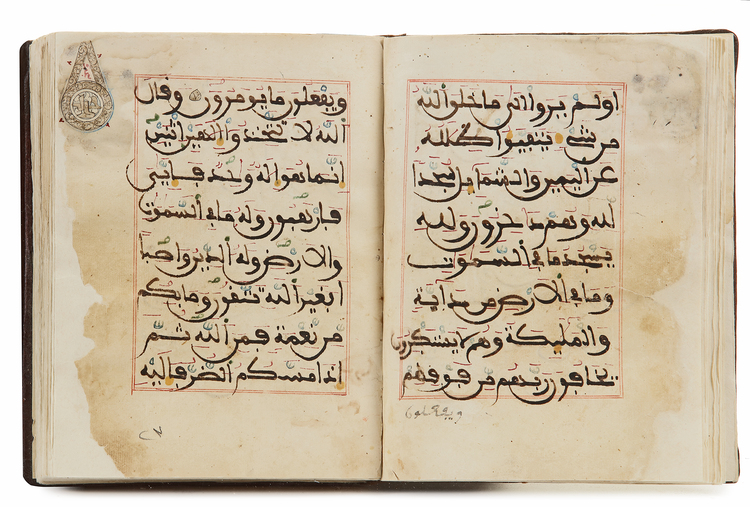 اولم يروا الى ما خلق الله
من شيء يتفيوا ظلله
عن اليمين والشمايل سجدا
لله وهم داخرون ولله
يسجد ما في السموت
وما في الارض من دابة
والمليكة وهم لا يستكبرون
يخافون ربهم من فوقهم
ويفعلون
ويفعلون ما يومرون وقال
الله لا تتخذوا الهين اثنين
انما هو اله وحد فايي
فارهبون وله ما في السموت
والارض وله الدين واصبا
افغير الله تتقون وما بكم
من نعمة فمن الله ثم
اذا مسكم الضر فاليه